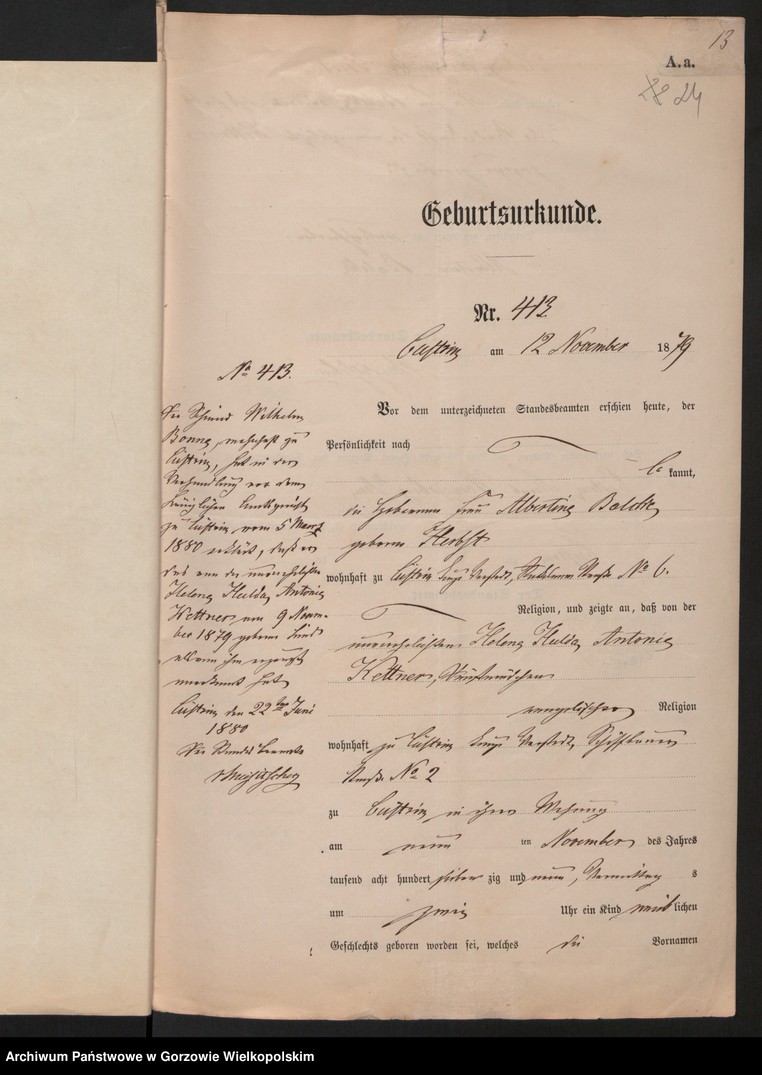 13
A. a.
24
Geburtsurkunde.
Nr. 413
Cüstrin am 12 November 1879
Vor dem unterzeichneten Standesbeamten erschien heute, der
Persönlichkeit nach
be kannt,
die Hebamme Frau Albertine Baldke
geborne Herbst
wohnhaft zu Cüstrin kurze Vorstadt, Straße No 6.
Religion, und zeigte an, daß von der
unverehelichten Helene Hulda Antonie
Kettner,
evangelischer Religion
wohnhaft zu Cüstrin kurze Vorstadt, Schiffbauer
Straße No 2
zu Cüstrin in ihrer Wohnung
am neun ten November des Jahres
tausend acht hundert sieben zig und neun, Vormittag s
um zwei Uhr ein Kind weiblichen
Geschlechts geboren worden sei, welches die Vornamen
No 413.
Der Schmied Wilhelm
Bonne, wohnhaft zu
Cüstrin, hat in der
Verhandlung vor dem
Königlichen Amtsgericht
zu Cüstrin vom 5 März
1880 erklärt, daß er
das von der unverehelichten
Helene Hulda Antonie
Kettner am 9 Novem-
ber 1879 geborne Kind
als von ihm erzeugt
anerkannt hat
Cüstrin den 22ten Juni
1880
Der Standesbeamte
Archiwum Państwowe w Gorzowie Wielkopolskim